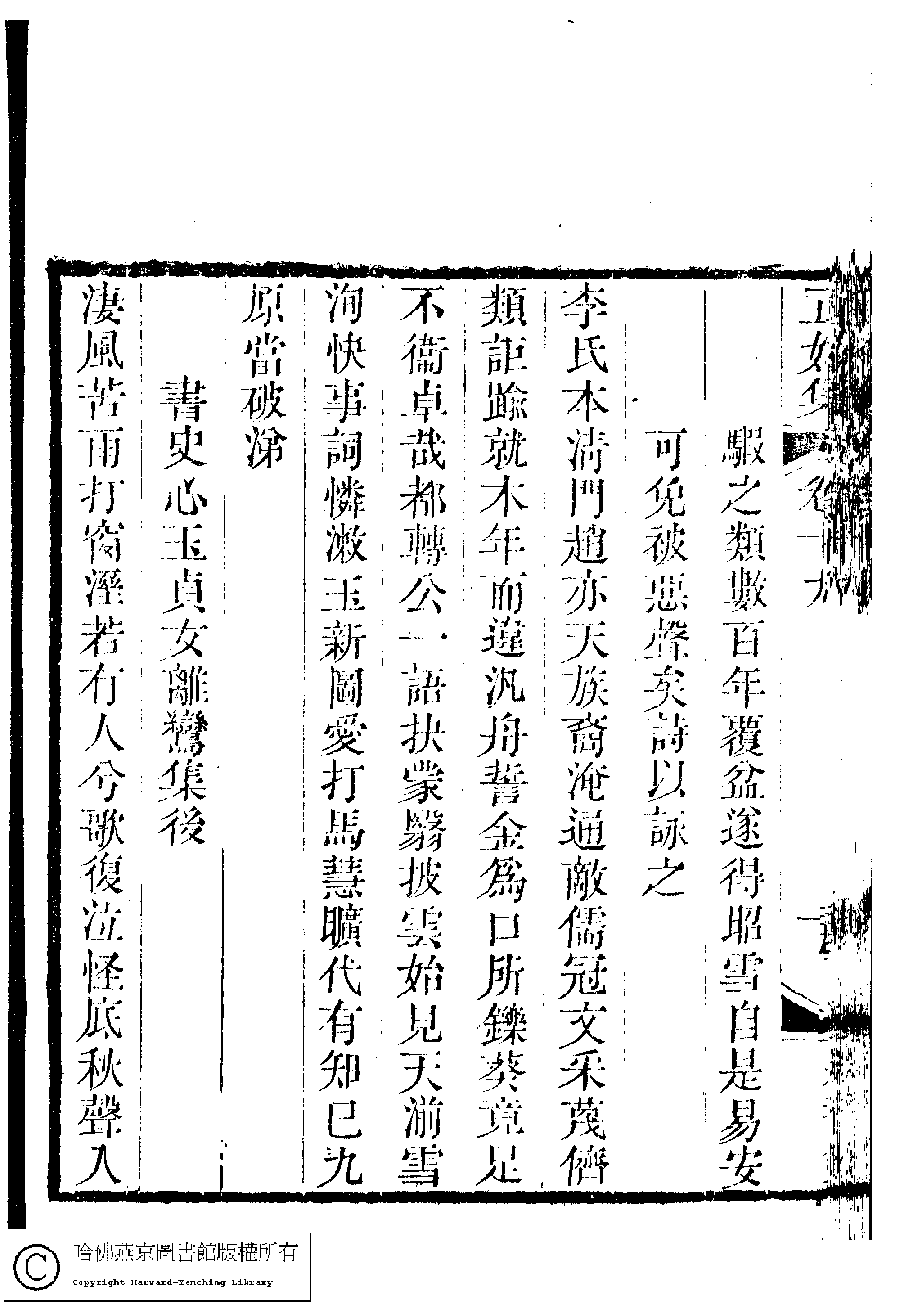 正始集 卷十九
騢之類數百年覆盆遂得昭雪自是易安
可免被惡聲矣詩以詠之
李氏本清門趙亦天族裔淹通敵儒冠文采蔑儕
類詎踰就木年而違汎舟誓金為口所鑠葵竟足
不衞卓哉都轉公一語抉蒙翳披雲始見天湔雪
洵快事詞憐漱玉新圖愛打馬慧曠代有知已九
原當破涕
書史心玉貞女離鸞集後
淒風苦雨打窗溼若有人兮歌復泣怪底秋聲入
哈佛燕京圖書館版權所有
Copyright Harvard-Yenching Library